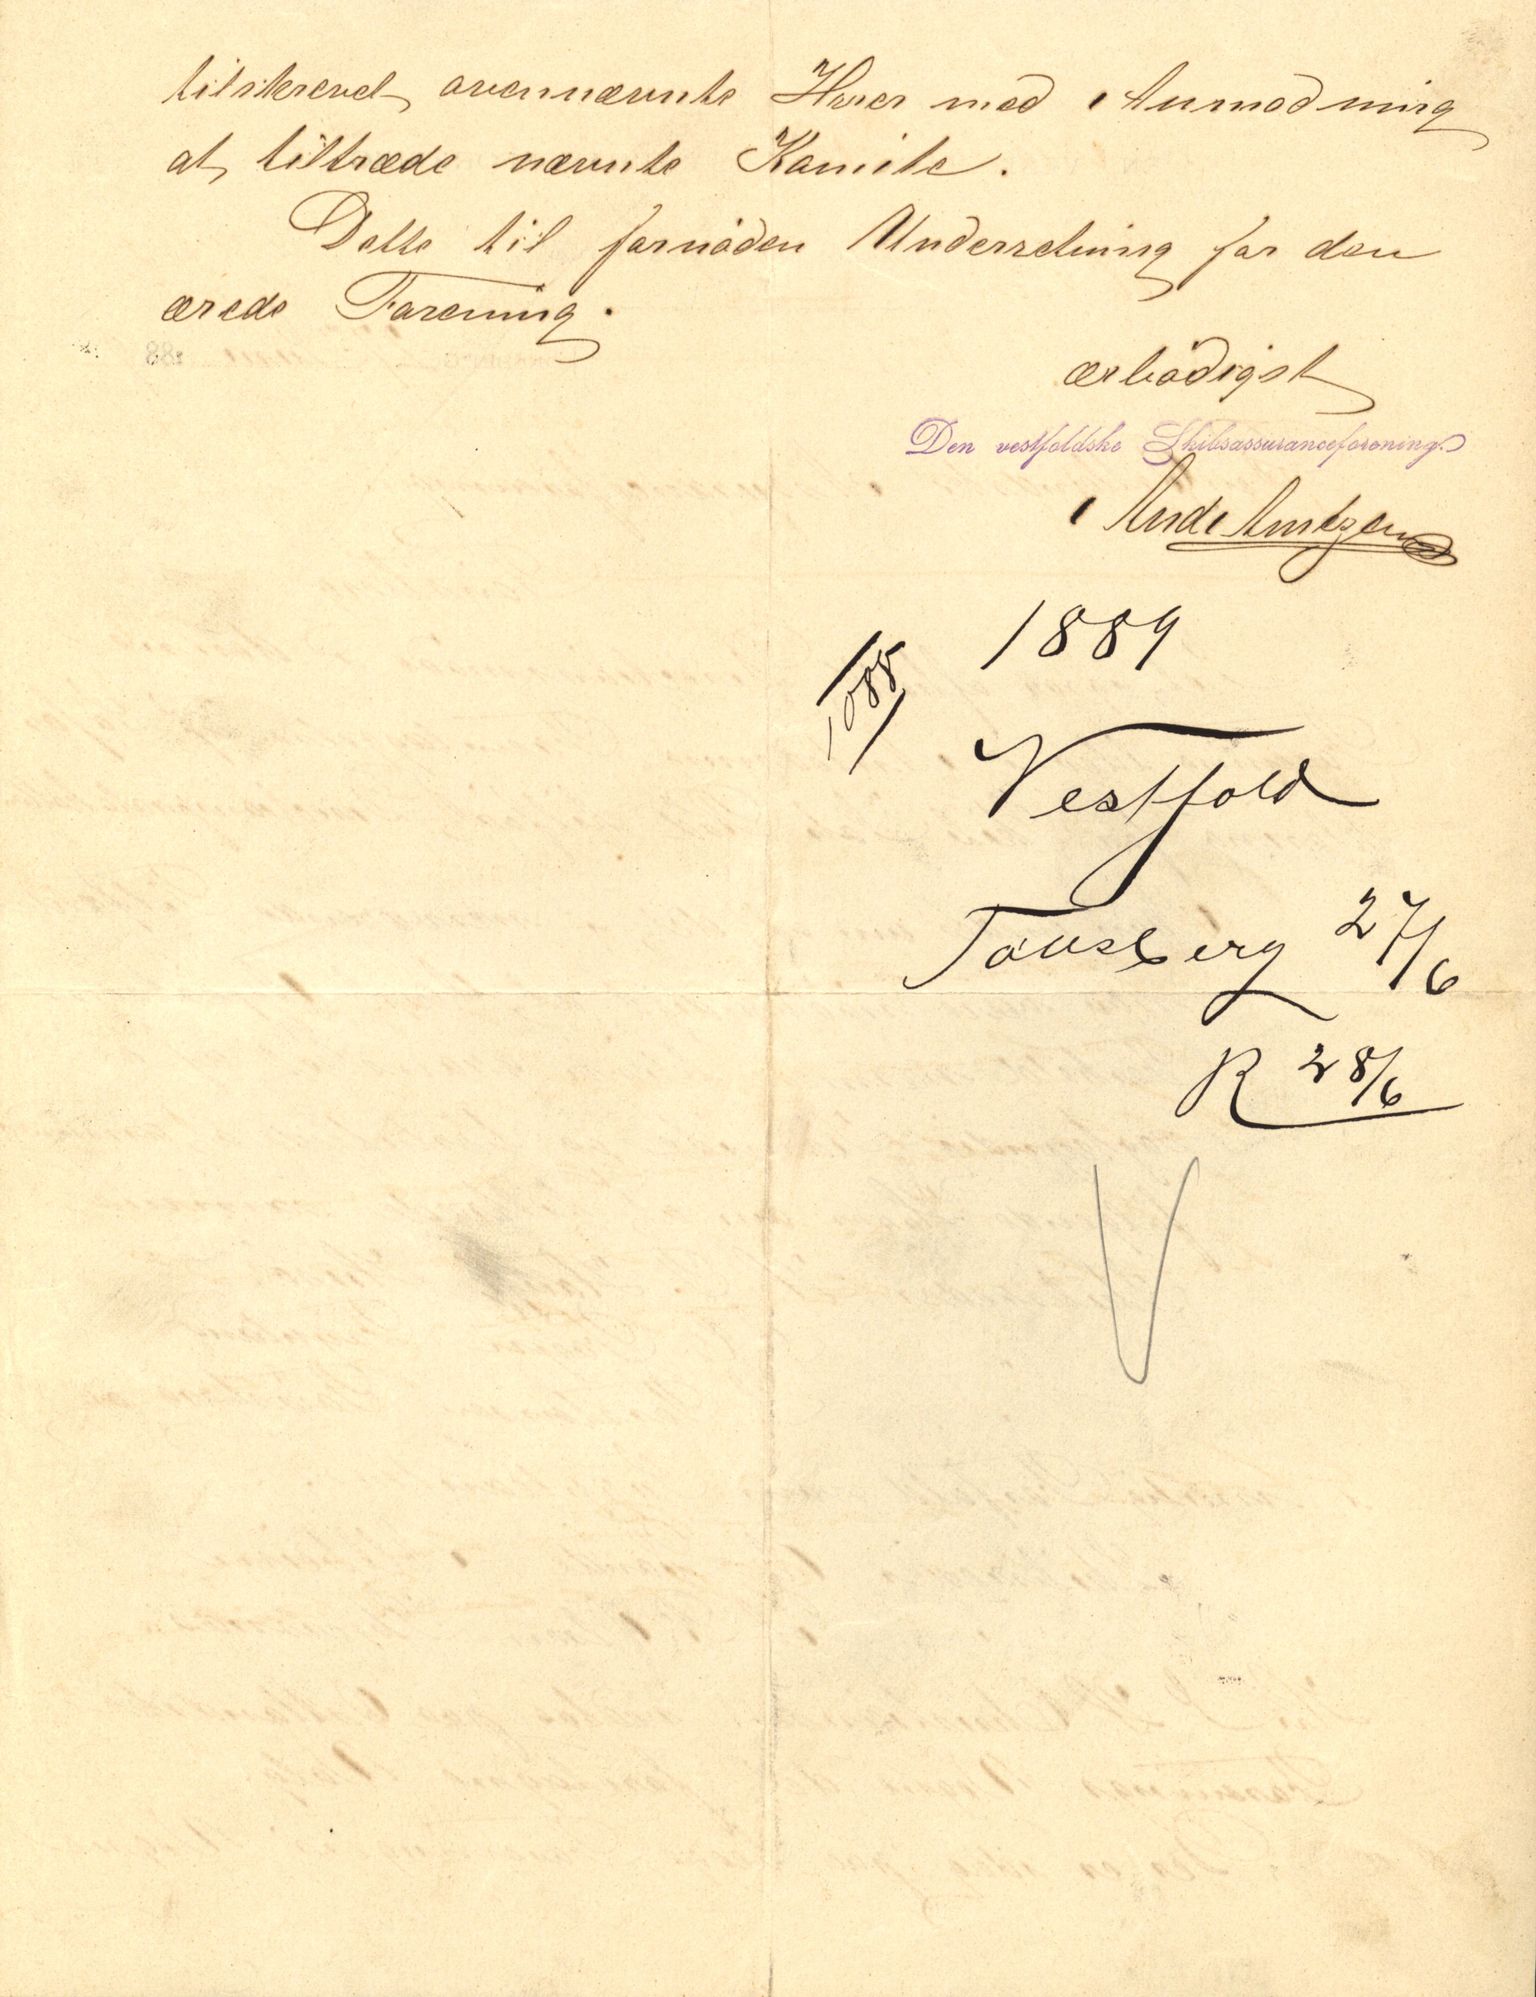 tilskrevet ovennævnte Herrer med Anmodning
at tiltræde nævnte Komite.
Dette til fornöden Underretning for den
ærede Forening.
ærbödigst
Den vestfoldske Skibsassuranceforening.
1889
1088
Vestfold
Tønsberg 27/6
R 28/6